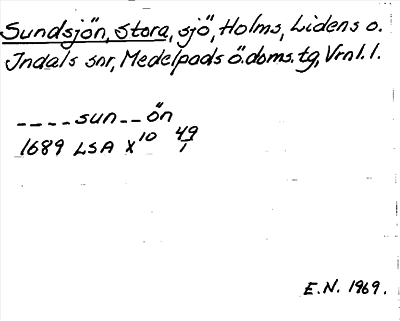 Sundsjön, Stora, sjö, Holms, Lidens o.
Indals snr, Medelpads ö.doms.tg, Vrnl.l.
----sun--ön
1689 LSA X10 49/1
E.N. 1969.